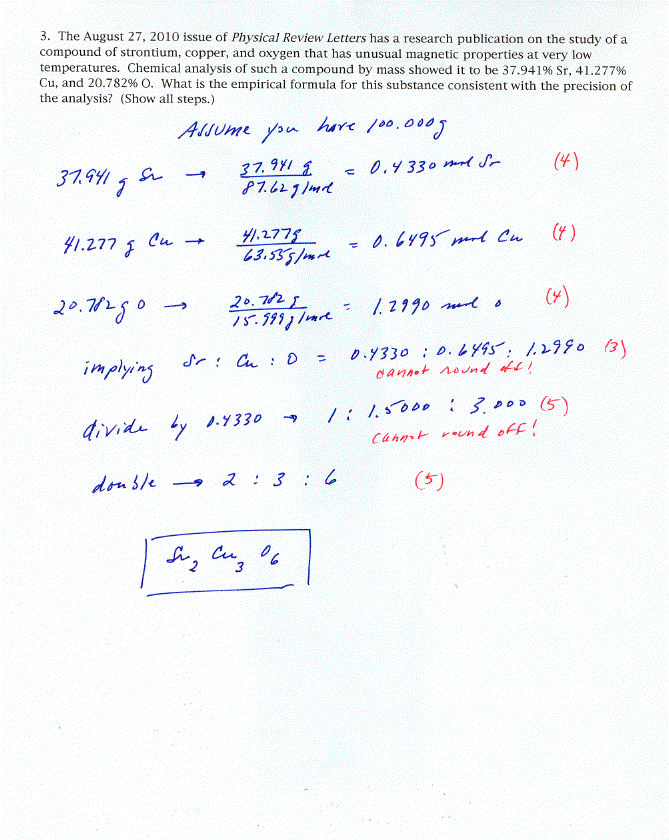 3. The August 27, 2010 issue of Physical Review Letters has a research publication on the study of a
compound of strontium, copper, and oxygen that has unusual magnetic properties at very low
temperatures. Chemical analysis of such a compound by mass showed it to be 37.941% Sr, 41.277%
Cu, and 20.782% O. What is the empirical formula for this substance consistent with the precision of
the analysis? (Show all steps.)
Assume you have 100.000g
37.941 g Sr → 37.941 g / 87.62 g/mol = 0.4330 mol Sr (4)
41.277 g Cu → 41.277g / 63.55g/mol = 0.6495 mol Cu (4)
20.782 g O → 20.782 g / 15.999g/mol = 1.2990 mol O (4)
implying Sr : Cu : O = 0.4330 : 0.6495 : 1.2990 (3)
cannot round off!
divide by 0.4330 → 1 : 1.5000 : 3.000 (5)
cannot round off!
double → 2 : 3 : 6 (5)
Sr2 Cu3 O6